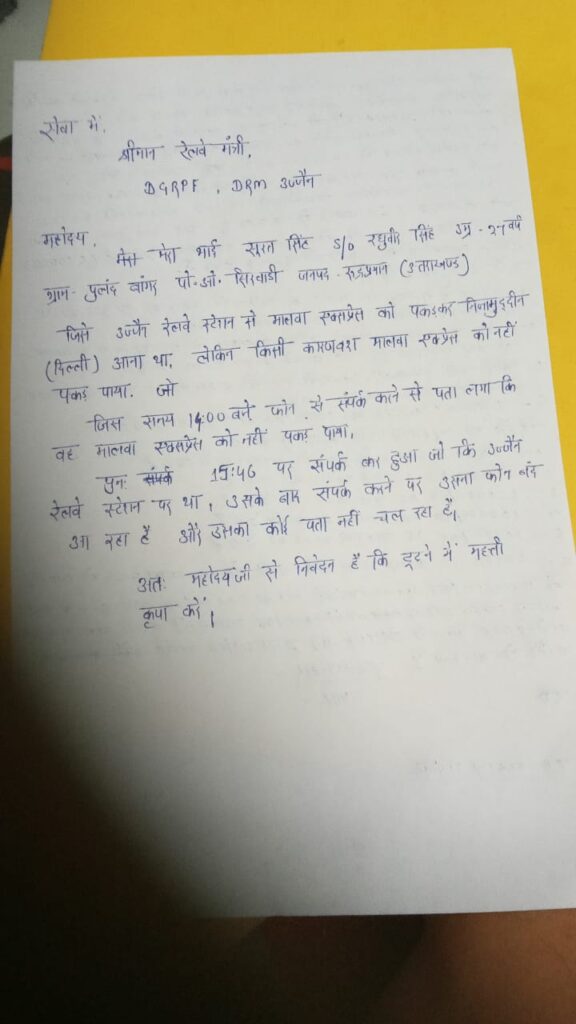 सेवा में,
श्रीमान रेलवे मंत्री,
DGRPF, DRM उज्जैन
महोदय,
मेरा भाई सूरत सिंह S/O रघुवीर सिंह उम्र - 27 वर्ष
ग्राम - पुलंद बांगर पो.ओ. जनपद - रूद्रप्रयाग (उत्तराखण्ड)
जिसे उज्जैन रेलवे स्टेशन से मालवा एक्सप्रेस को पकड़कर निजामुद्दीन
(दिल्ली) आना था, लेकिन किसी कारणवश मालवा एक्प्रेस को नहीं
पकड़ पाया. जो
जिस समय 14:00 बजे फोन से संपर्क करने से पता लगा कि
वह मालवा एक्सप्रेस को नहीं पकड़ पाया,
पुनः संपर्क 15:46 पर संपर्क कर हुआ जो कि उज्जैन
रेलवे स्टेशन पर था, उसके बाद संपर्क करने पर उसका फोन बंद
आ रहा है और उसका कोई पता नहीं चल रहा है।
अतः महोदय जी से निवेदन है कि ढूढने में महत्ती
कृपा करें।